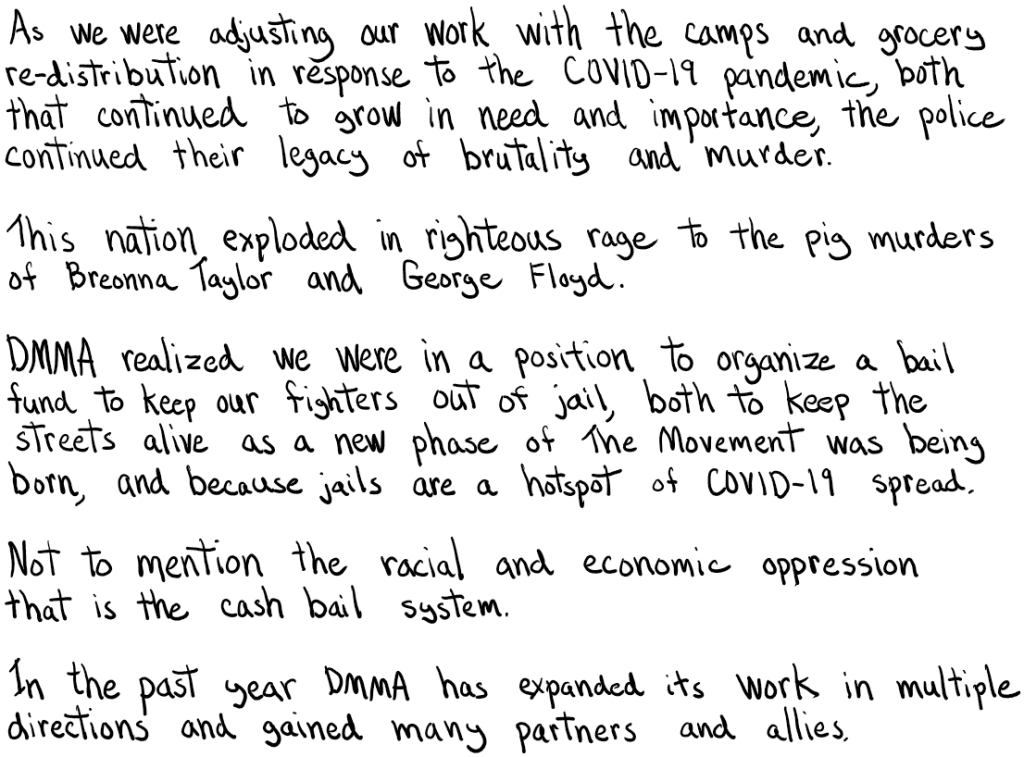 As we were adjusting our work with the camps and grocery
re-distribution in response to the COVID-19 pandemic, both
that continued to grow in need and importance, the police
continued their legacy of brutality and murder.
This nation exploded in righteous rage to the pig murders
of Breonna Taylor and George Floyd.
DMMA realized we were in a position to organize a bail
fund to keep our fighters out of jail, both to keep the
streets alive as a new phase of The Movement was being
born, and because jails are a hotspot of COVID-19 spread.
Not to mention the racial and economic oppression
that is the cash bail system.
In the past year DMMA has expanded its work in multiple
directions and gained many partners and allies.